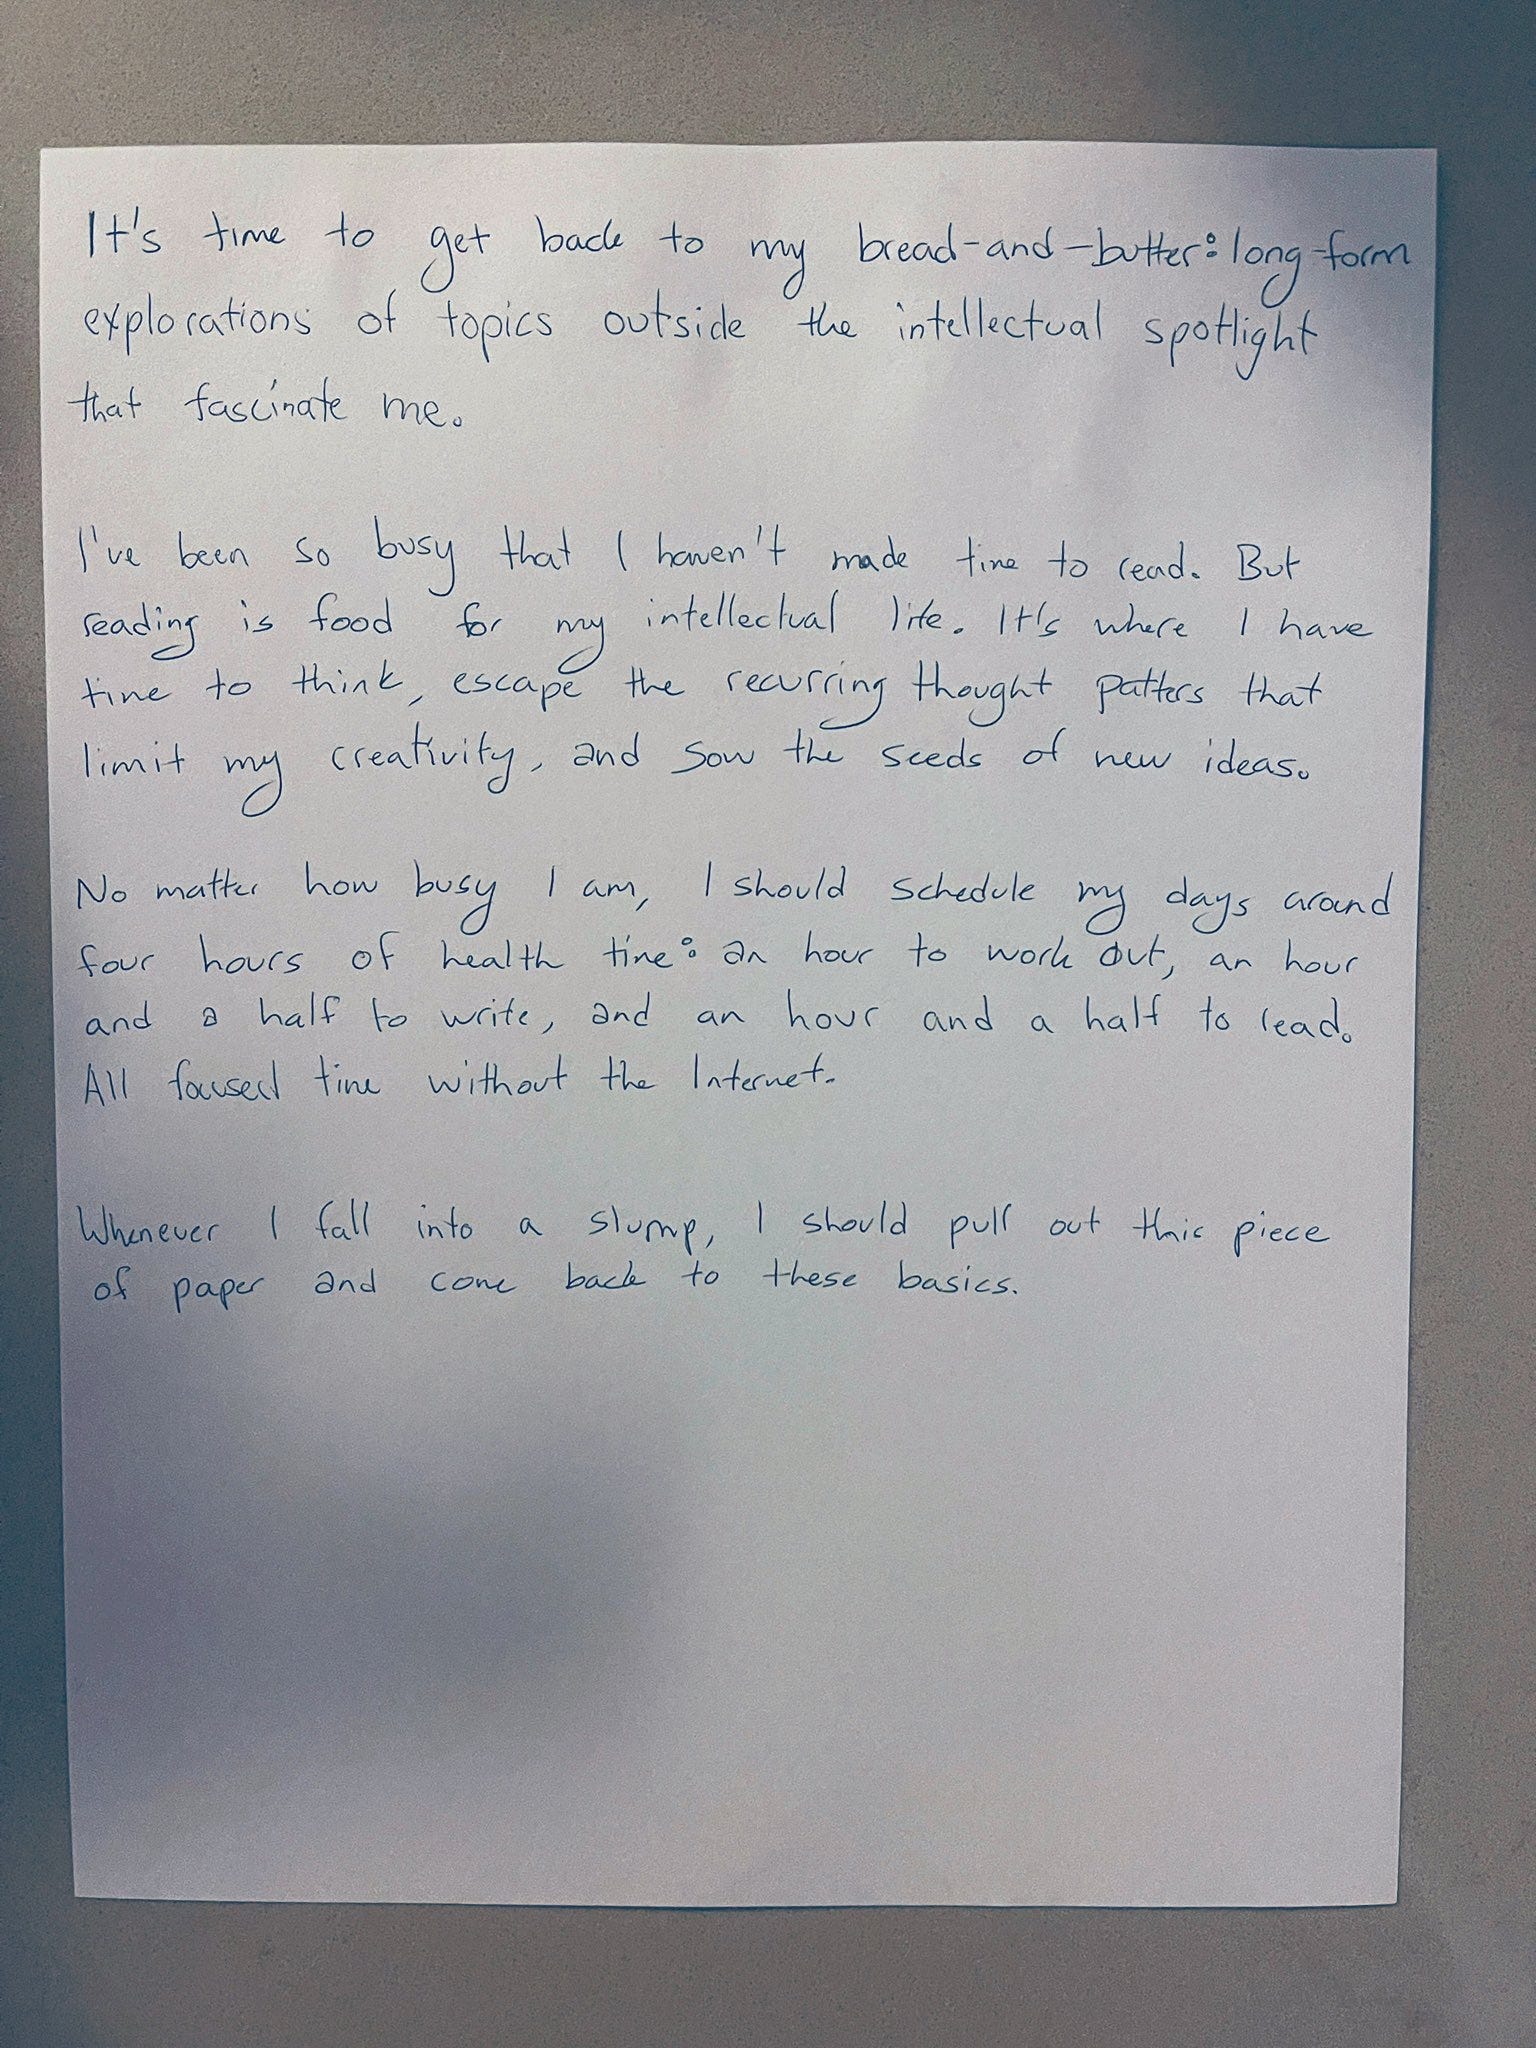 It's time to get back to my bread-and-butter: long-form
explorations of topics outside the intellectual spotlight
that fascinate me.
I've been so busy that I haven't made time to read. But
reading is food for my intellectual life. It's where I have
time to think, escape the recurring thought patters that
limit my creativity, and sow the seeds of new ideas.
No matter how busy I am, I should schedule my days around
four hours of health time: an hour to work out, an hour
and a half to write, and an hour and a half to read.
All focused time without the Internet.
Whenever I fall into a slump, I should pull out this piece
of paper and come back to these basics.